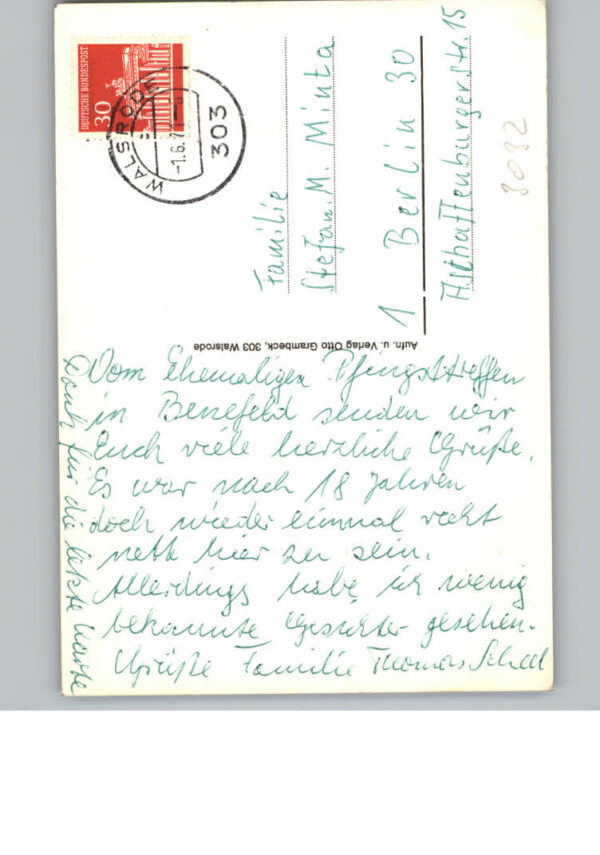 DEUTSCHE BUNDESPOST
30
WALSRODE
-1.6.7
303
Familie
Stefan. M. Minta
1 Berlin 30
Aschaffenburgerstr. 15
3032
Aufn. u. Verlag Otto Grambeck, 303 Walsrode
Vom Ehemaligen Pfingsttreffen
in Benefeld senden wir
Euch viele herzliche Grüße.
Es war nach 18 Jahren
doch wieder einmal recht
nett hier zu sein.
Allerdings habe ich wenig
bekannte Gesichter gesehen.
Grüße Familie Thomas
Dank für die letzte Karte